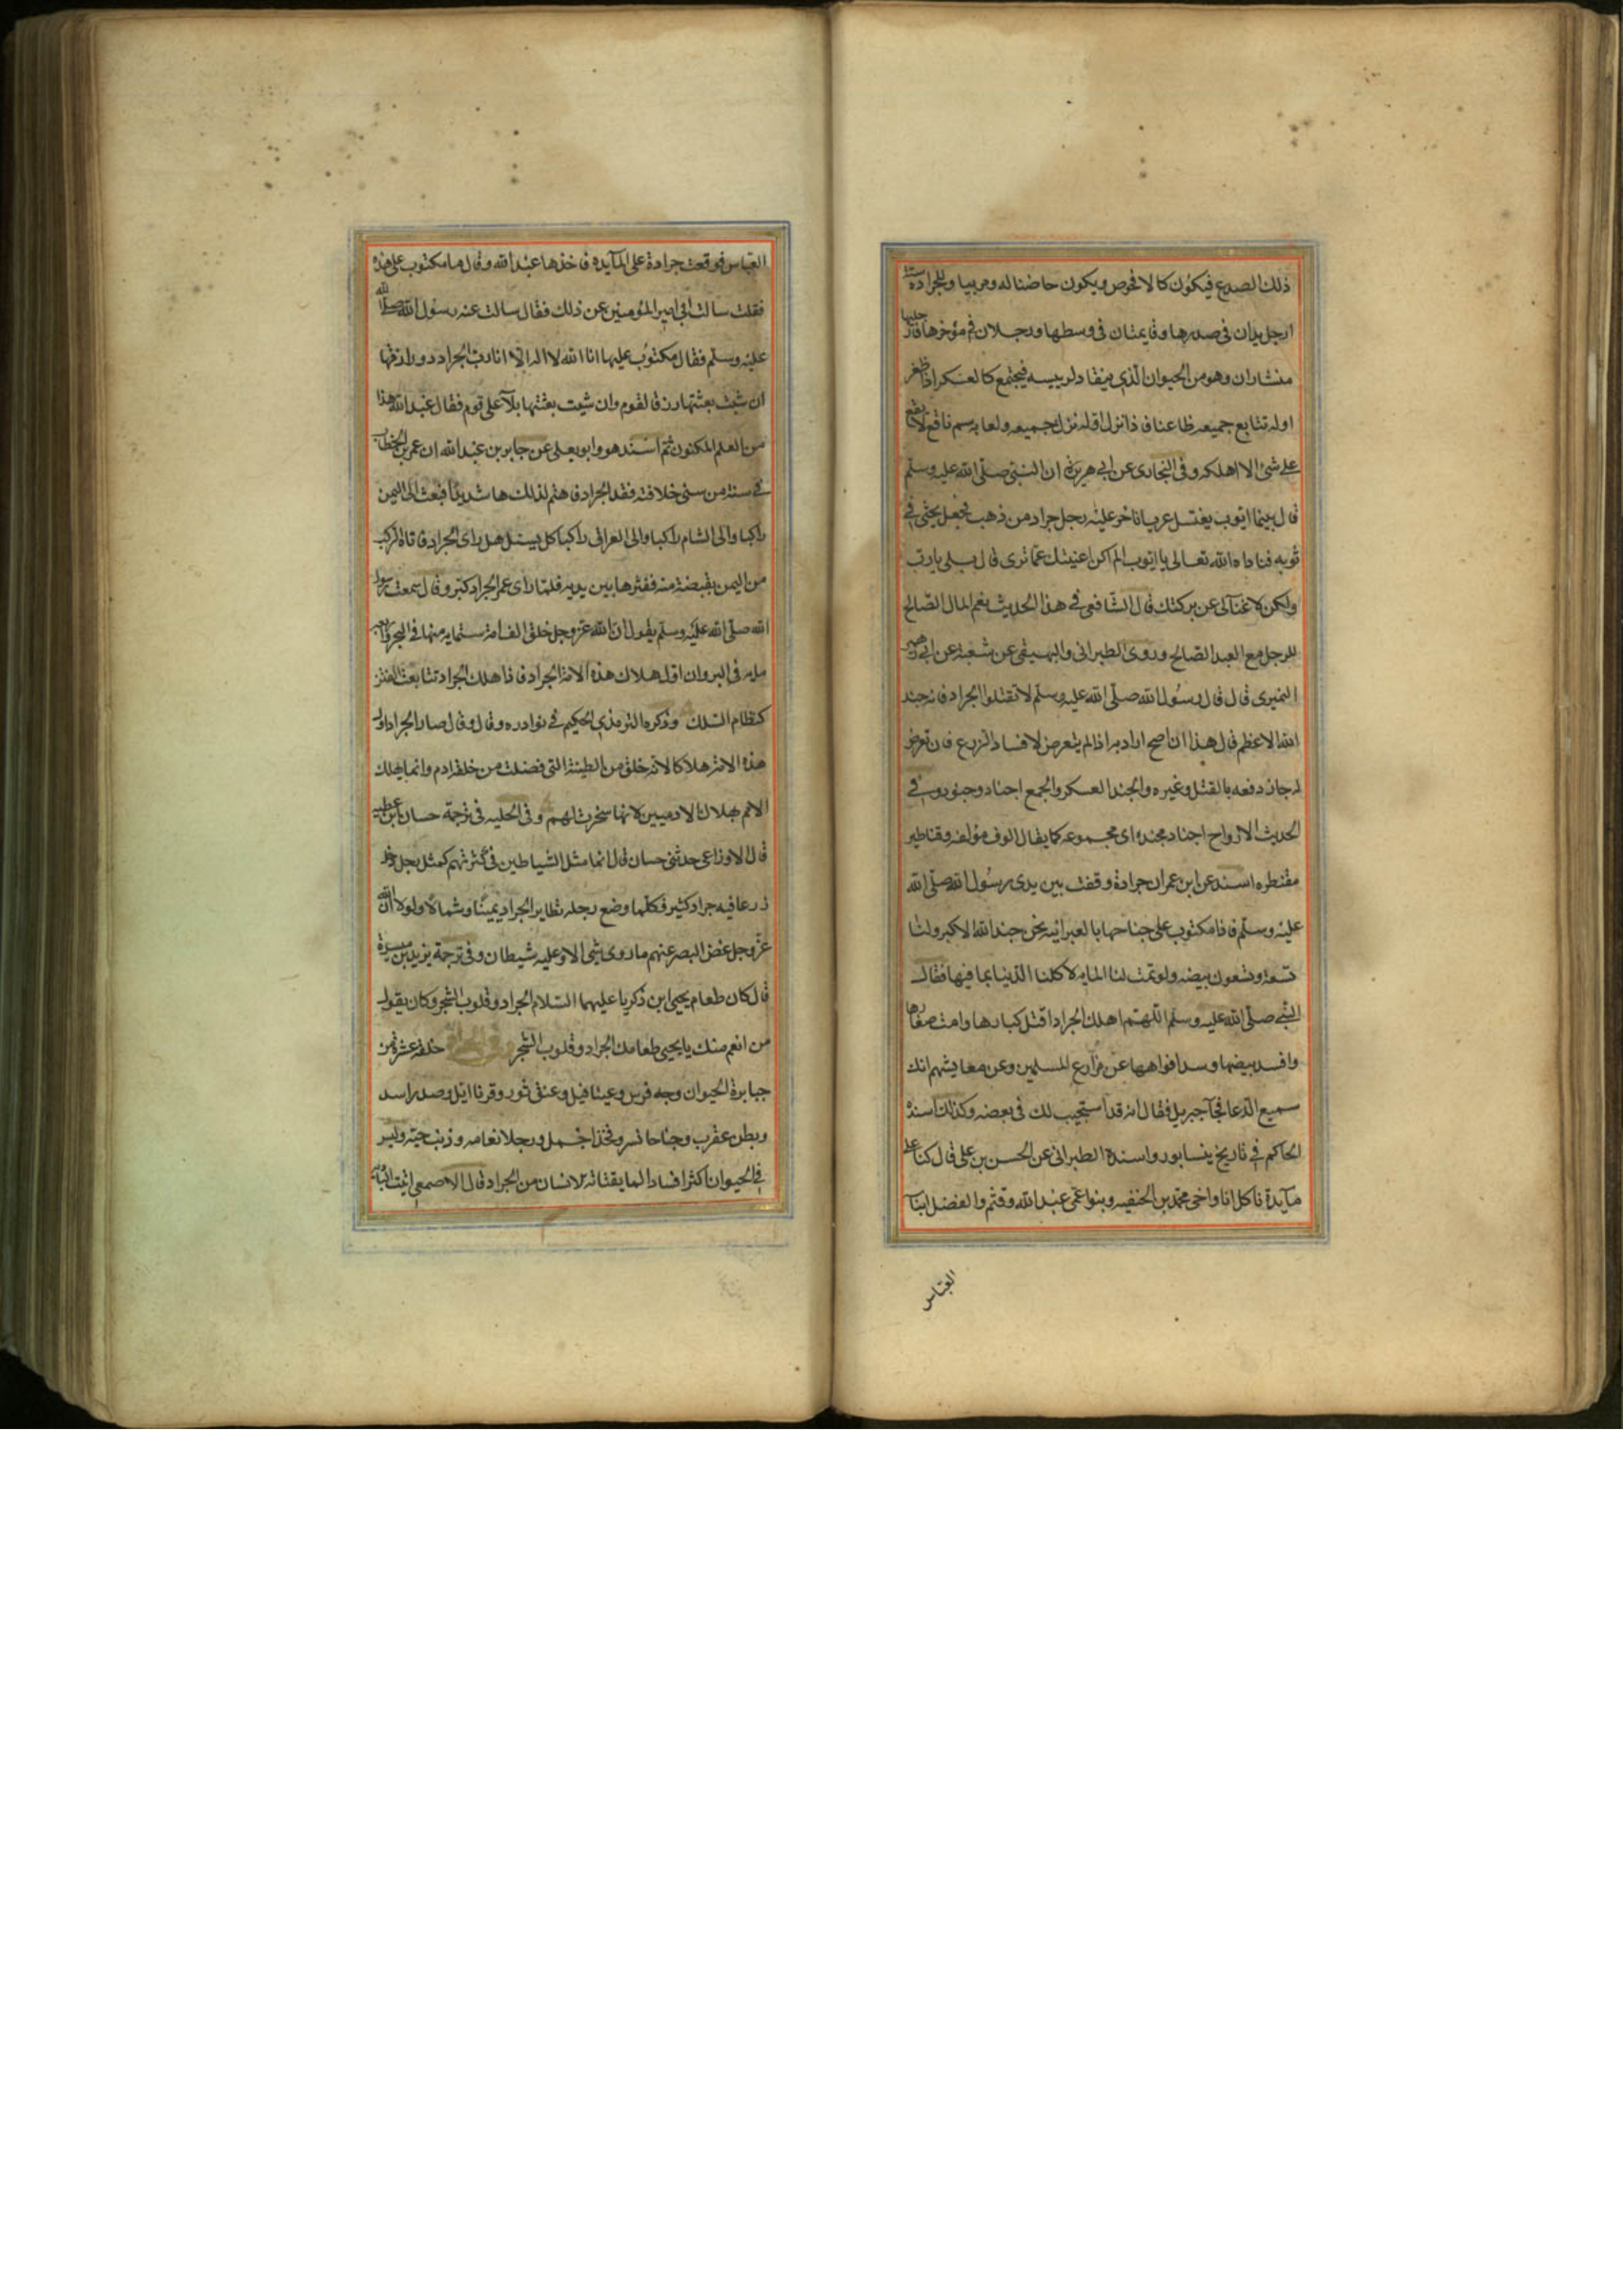 ذلك الصدع فيكون كالافحوص ويكون حاضنا له ومربيا وللجرادة ستة
ارجل يدان في صدرها وقايمتان في وسطها ورجلان في مؤخرها
منشاران وهو من الحيوان الذي ينقاد لرييسه فيجتمع كالعسكر اذا ظعن
اوله تتابع جميعه ظاعنا فاذا نزل اوله نزل جميعه ولعابه سم ناقع لا يقع
على شئ الا اهلكه وفي البخاري عن ابي هريرة ان النبي صلى الله عليه وسلم
قال بينما ايوب يغتسل عريانا خر عليه رجل جراد من ذهب فجعل يحثي في
ثوبه فناداه الله تعالى يا ايوب الم اكن اغنيتك عما ترى قال بلى يا رب
ولكن لا غنا لي عن بركتك قال الشافعي في هذا الحديث نعم المال الصالح
للرجل مع العبد الصالح وروى الطبراني والبيهقي عن شعبة عن ابي زهير
النميري قال قال رسول الله صلى الله عليه وسلم لا تقتلوا الجراد فانه جند
الله الاعظم قال هذا ان صح اراد به اذا لم يتعرض لافساد الزرع فان تعرض
له جاز دفعه بالقتل وغيره والجند العسكر والجمع اجناد وجنود وفي
الحديث الارواح اجناد مجندة اي مجموعه كما يقال الوف مؤلفه وقناطير
مقنطره اسند عن ابن عمر ان جرادة وقفت بين يدي رسول الله صلى الله
عليه وسلم فاذا مكتوب على جناحها بالعبرانيه نحن جند الله الاكبر ولنا
تسعة وتسعون بيضه ولو تمت لنا المايه لاكلنا الدنيا بما فيها فقال
النبي صلى الله عليه وسلم اللهم اهلك الجراد اقتل كبارها وامت صغارها
وافسد بيضها وسد افواهها عن مزارع المسلمين وعن معايشهم انك
سميع الدعا فجآ جبريل فقال انه قد استجيب لك في بعضه وكذلك اسنده
الحاكم في تاريخ نيسابور واسنده الطبراني عن الحسن بن علي قال كنا على
مآيدة ناكل انا واخي محمد بن الحنفيه وبنو عمي عبد الله وقثم والفضل ابنآ
العباس
العباس فوقعت جرادة على المآيده فاخذها عبد الله وقال ما مكتوب على هذه
فقلت سالت ابي امير المؤمنين عن ذلك فقال سالت عنه رسول الله صلى الله
عليه وسلم فقال مكتوب عليها انا الله لا اله الا انا رب الجراد ورازقها
ان شيت بعثتها رزقا لقوم وان شيت بعثتها بلآ على قوم فقال عبد الله هذا
من العلم المكنون ثم اسند هو وابو يعلى عن جابر بن عبد الله ان عمر بن الخطاب
في سنة من سني خلافته فقد الجراد فاهتم لذلك هما شديدا فبعث الى اليمن
راكبا والى الشام راكبا والى العراق راكبا كل يسئل هل راى الجراد فاتاه الراكب
من اليمن بقبضة منه فنثرها بين يديه فلما راى عمر الجراد كبر وقال سمعت رسول
الله صلى الله عليه وسلم يقول ان الله عز وجل خلق الف امة ستمايه منها في البحر واربع
مايه في البر وان اول هلاك هذه الامة الجراد فاذا هلك الجراد تتابعت
كنظام السلك وذكره الترمذي الحكيم في نوادره وقال وقال صار الجراد اول
هذه الامة هلاكا لانه خلق من الطينة التي فضلت من خلق ادم وانما يهلك
الامم بهلاك الادميين لانها سخرت لهم وفي الحليه في ترجمة حسان بن عطيه
قال الاوزاعي حدثني حسان قال انما مثل الشياطين في كثرتهم كمثل رجل دخل
زرعا فيه جراد كثير فكلما وضع رجله تطاير الجراد يمينا وشمالا ولولا ان الله
عز وجل غض البصر عنهم ما روى شئ الا وعليه شيطان وفي ترجمة يزيد بن ميسرة
قال كان طعام يحيى ابن زكريا عليهما السلام الجراد وقلوب الشجر وكان يقول
من انعم منك يا يحيى طعامك الجراد وقلوب الشجر خلقة عشرة من
جبابرة الحيوان وجه فرس وعينا فيل وعنق ثور وقرنا ايل وصدر اسد
وبطن عقرب وجناحا نسر وفخذا جمل ورجلا نعامه وذنب حية وليس
في الحيوان اكثر افسادا لما يقتاته الانسان من الجراد قال الاصمعي اتيت البادية